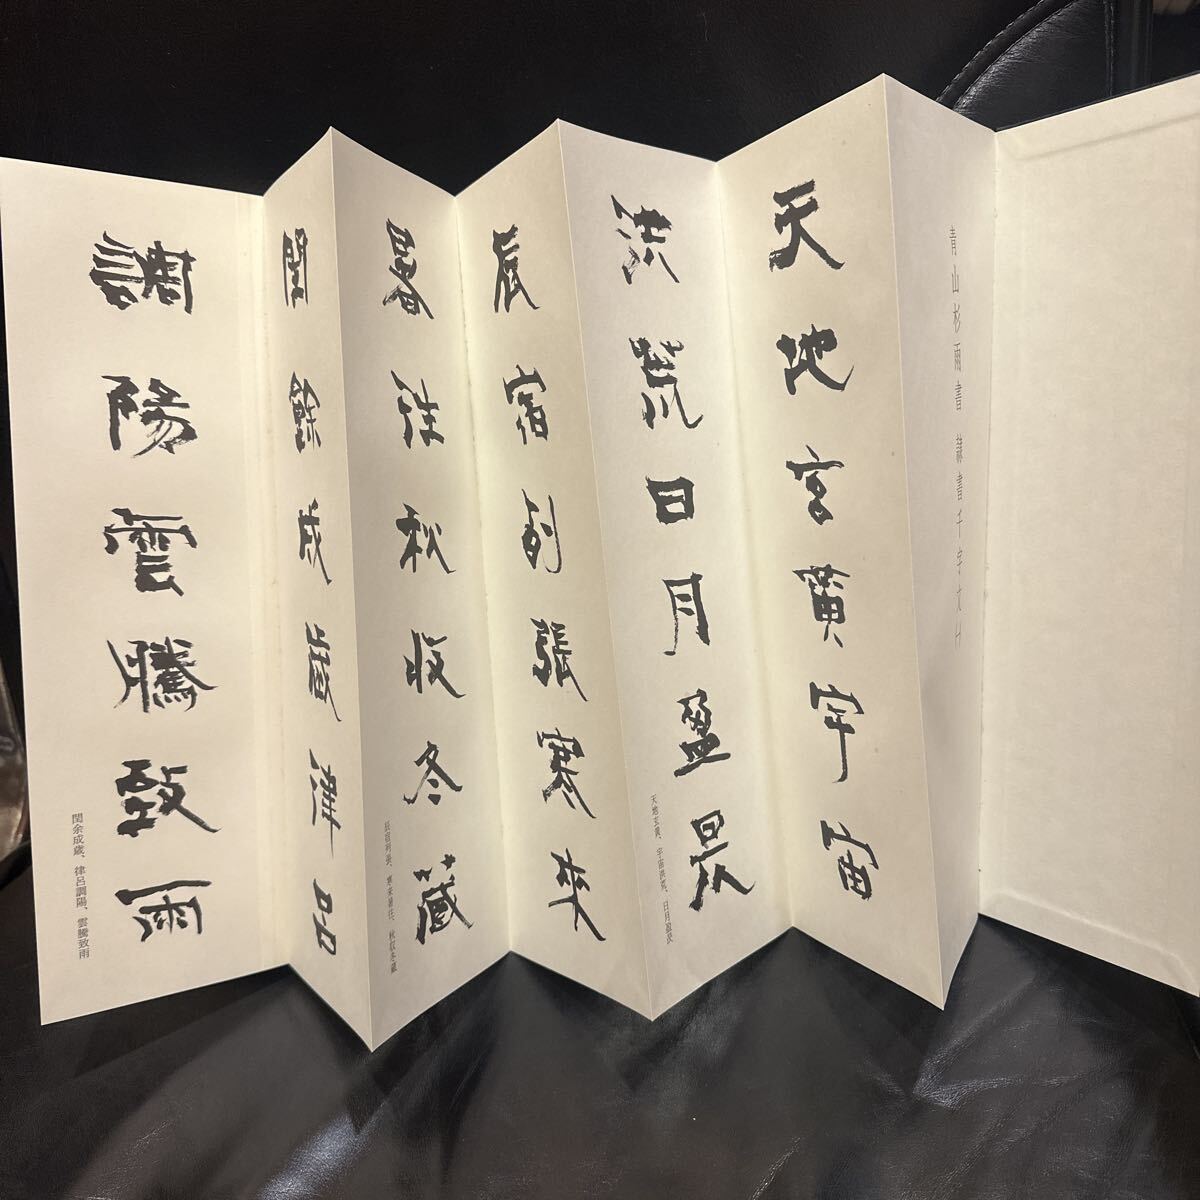 青山杉雨書 隷書千字文 上
天地玄黃宇宙
洪荒日月盈昃
天地玄黄、宇宙洪荒、日月盈昃
辰宿列張寒來
暑往秋收冬藏
辰宿列張、寒来暑往、秋収冬蔵
閏餘成歲律呂
調陽雲騰致雨
閏余成歳、律呂調陽、雲騰致雨